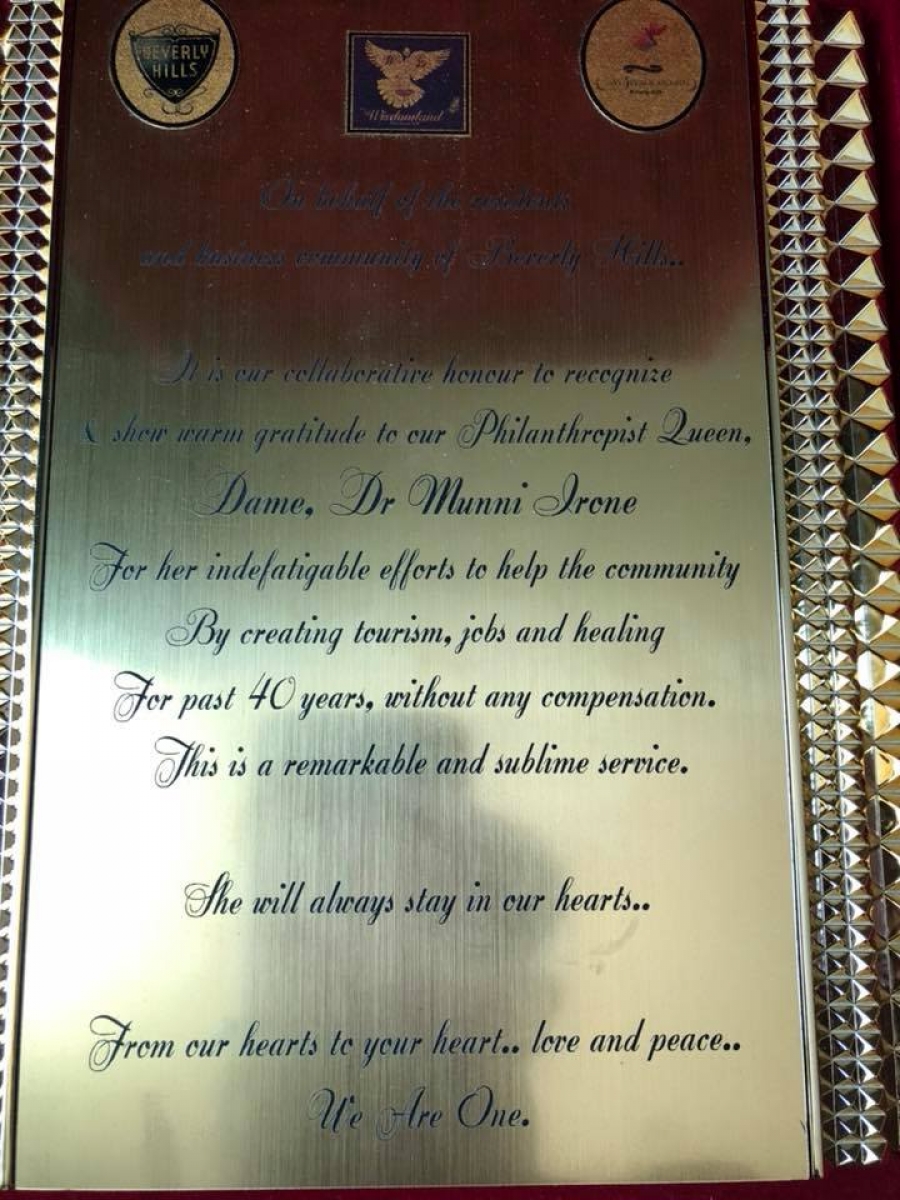 BEVERLY
HILLS
Wisdomland
On behalf of the residents
and business community of Beverly Hills..
It is our collaborative honour to recognize
& show warm gratitude to our Philanthropist Queen,
Dame, Dr Munni Irone
For her indefatigable efforts to help the community
By creating tourism, jobs and healing
For past 40 years, without any compensation.
This is a remarkable and sublime service.
She will always stay in our hearts..
From our hearts to your heart.. love and peace..
We Are One.